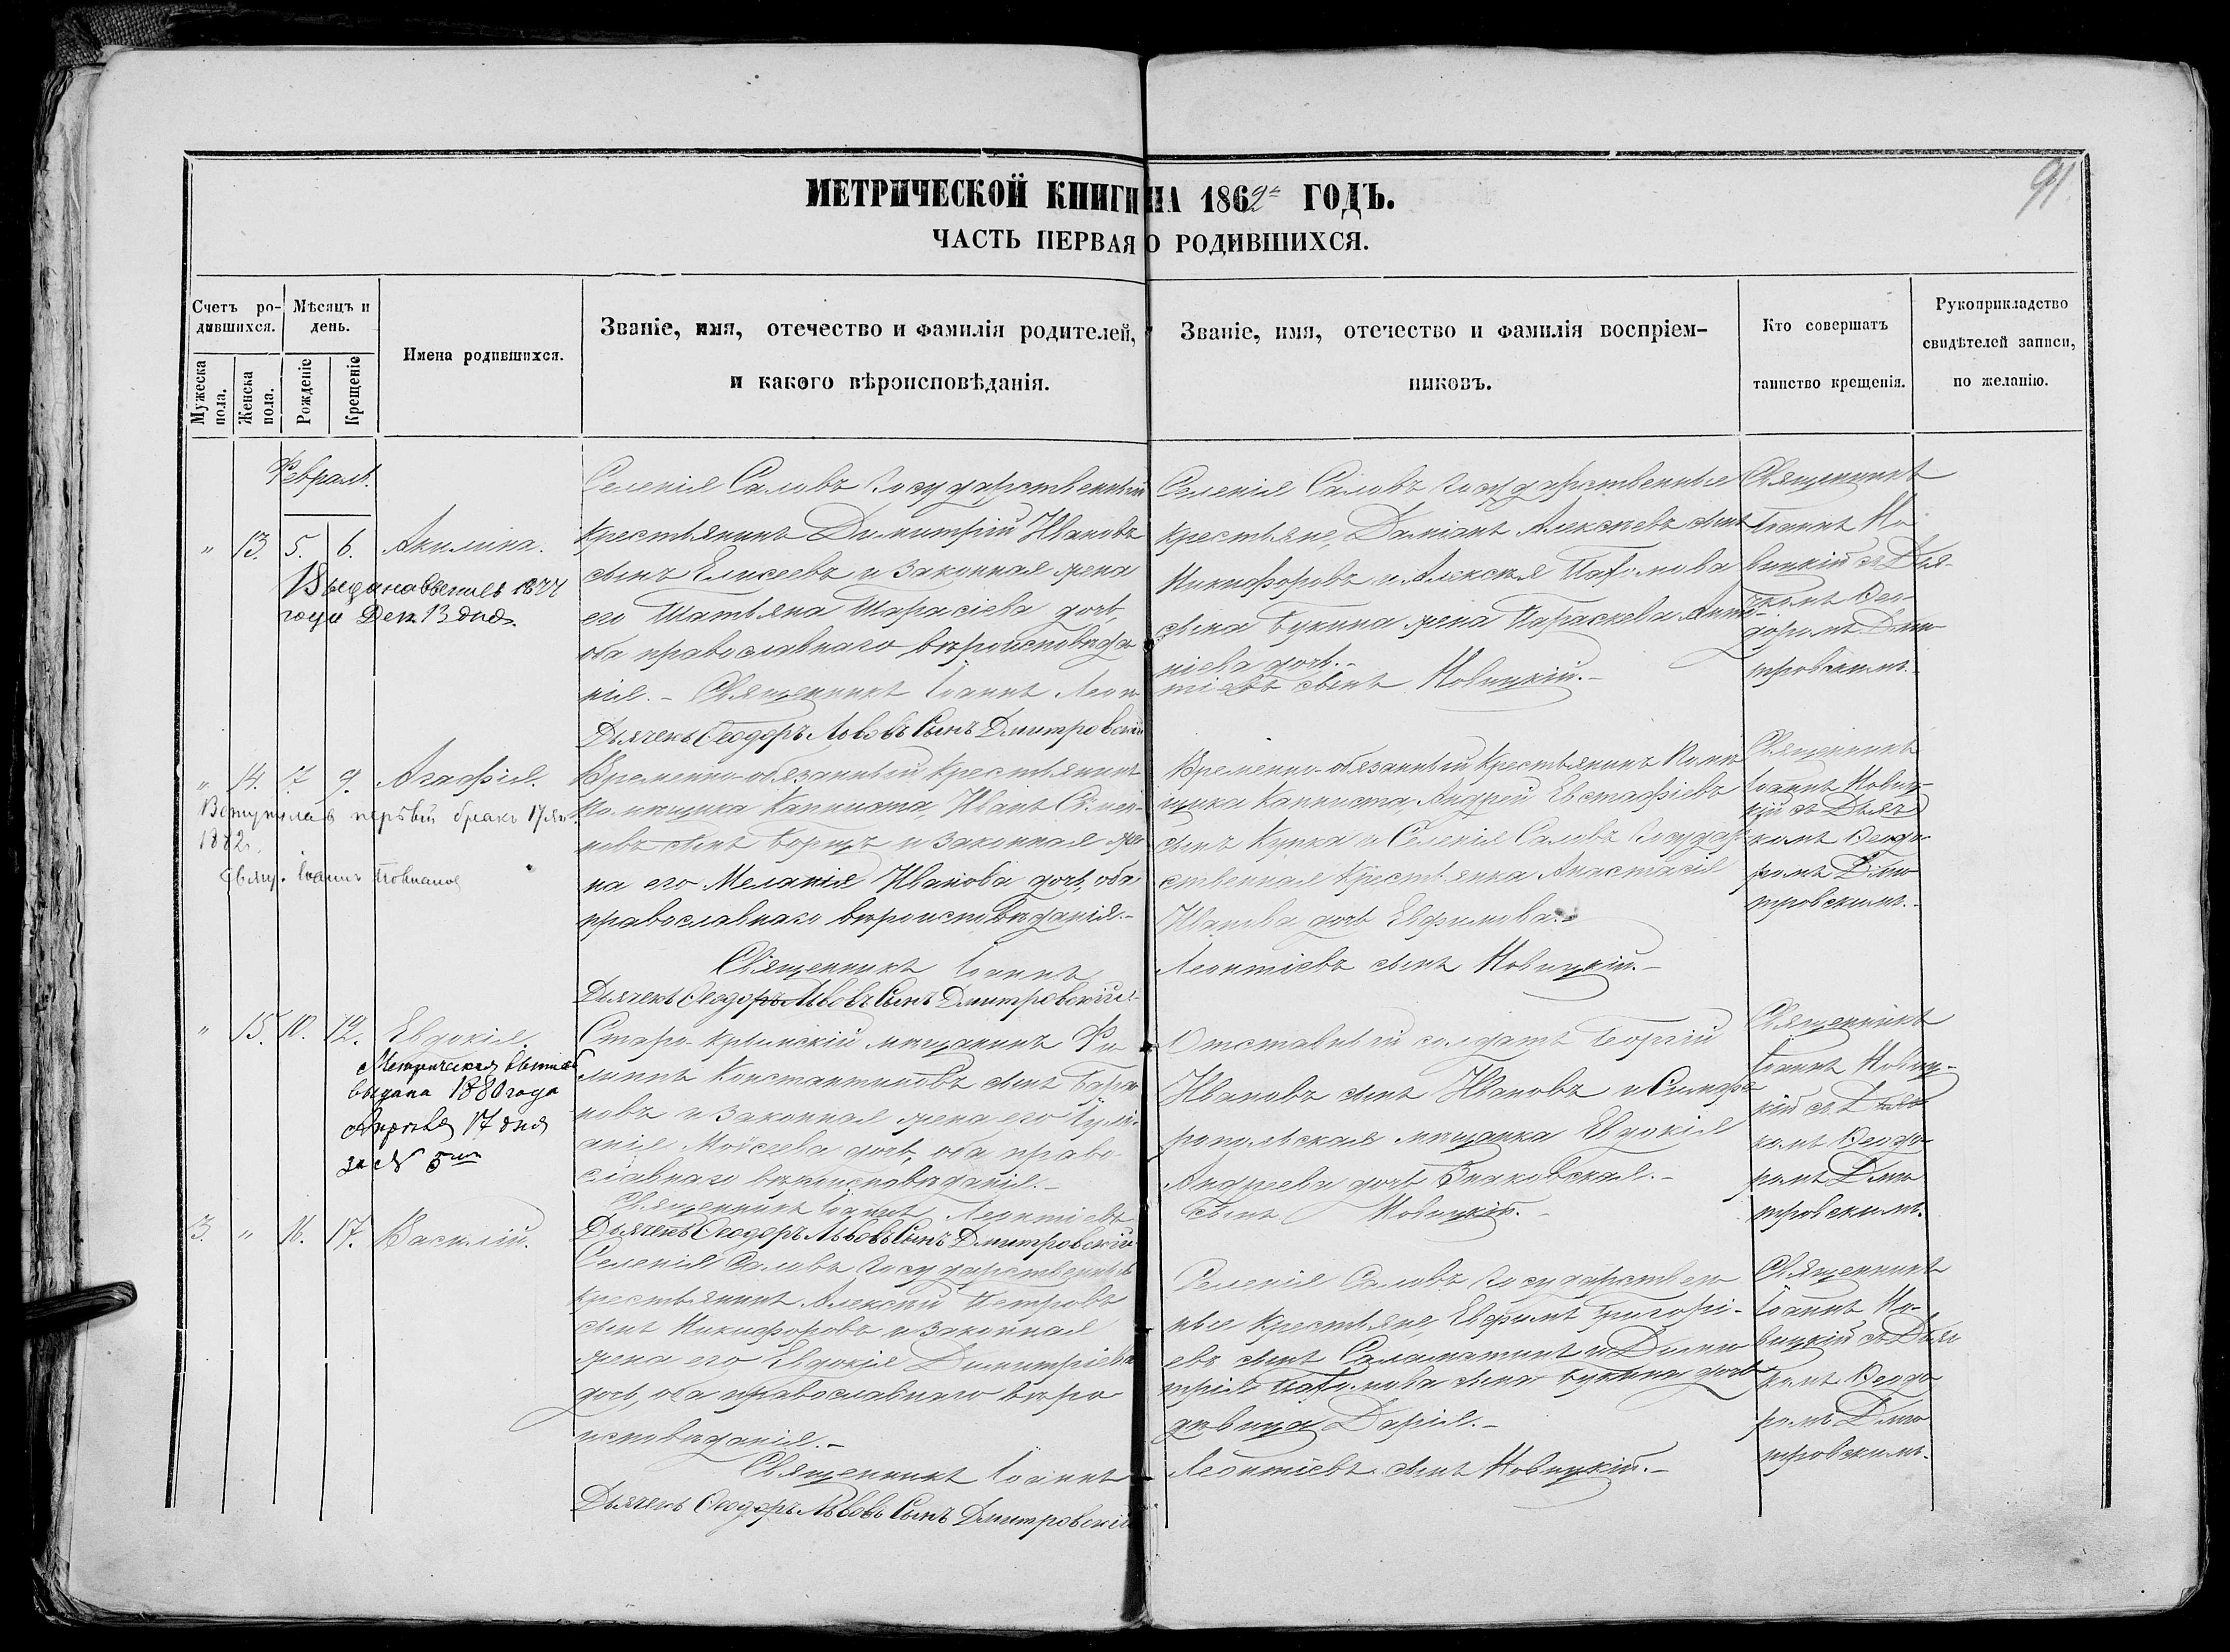 91
МЕТРИЧЕСКОЙ КНИГИ НА 1862й ГОДЪ.
ЧАСТЬ ПЕРВАЯ О РОДИВШИХСЯ.
Счетъ ро-
дившихся.
Мужеска
пола.
Женска
пола.
Мѣсяцъ и
день.
Рожденіе
Крещеніе
Имена родившихся.
Званіе, имя, отечество и фамилія родителей,
и какого вѣроисповѣданія.
Званіе, имя, отечество и фамилія воспріем-
никовъ.
Кто совершатъ
таинство крещенія.
Рукоприкладство
свидѣтелей записи,
по желанію.
Февраль.
" 13. 5. 6. Акилина.
1877
года Дек. 13 дня.
Селенія Саловъ Государственный
крестьянинъ Димитрій Ивановъ
сынъ Елисеевъ и законная жена
его Татьяна Тарасіева дочь,
оба православнаго вѣроисповѣда-
нія.- Священникъ Іоаннъ Леон-
Дьячекъ Ѳеодоръ Львовъ Сынъ Дмитровскій
Селенія Саловъ Государственные
крестьяне, Даміанъ Алексѣевъ сынъ
Никифоровъ и Алексѣя Пахомова
сына Букина жена Параскева Анто-
ніева дочь.-
тіевъ сынъ Новицкій.-
Священникъ
Іоаннъ Но-
вицкій съ Дья-
чкомъ Ѳео-
доромъ Дми-
тровскимъ.
" 14. 7. 9. Агафія.
Вступила въ первый бракъ 17 янв.
1882 г.
Свящ. Іоаннъ
Временно-обязанный крестьянинъ
помѣщика Капниста, Иванъ Сѵмео-
новъ сынъ Борщъ и законная же-
на его Меланія Иванова дочь, оба
православнаго вѣроисповѣданія.-
Священникъ Іоаннъ
Дьячекъ Ѳеодоръ Львовъ Сынъ Дмитровскій.-
Временно-обязанный крестьянинъ Помѣ-
щика Капниста, Андрей Евстафіевъ
сынъ Купка и Селенія Саловъ Государ-
ственная крестьянка Анастасія
Иванова дочь Евфимова.-
Леонтіевъ сынъ Новицкій.-
Священникъ
Іоаннъ Новиц-
кій съ Дьяч-
комъ Ѳеодо-
ромъ Дми-
тровскимъ.
" 15. 10. 12. Евдокія.
Метрическая выпись
выдана 1880 года
Апрѣля 17 дня
за № 5мъ
Старо-Крымскій мѣщанинъ Фи-
липпъ Константиновъ сынъ Бара-
новъ и законная жена его Іулі-
анія Моѵсеева дочь, оба право-
славнаго вѣроисповѣданія.-
Священникъ Іоаннъ Леонтіевъ
Дьячекъ Ѳеодоръ Львовъ Сынъ Дмитровскій
Отставный солдатъ Георгій
Ивановъ сынъ Ивановъ и Симфе-
ропольская мѣщанка Евдокія
Андреева дочь Знаковская.-
сынъ Новицкій.-
Священникъ
Іоаннъ Новиц-
кій съ Дьяч-
комъ Ѳеодо-
ромъ Дми-
тровскимъ.
3. " 16. 17. Василій.
Селенія Саловъ Государственный
крестьянинъ Алексій Петровъ
сынъ Никифоровъ и законная
жена его Евдокія Димитріева
дочь, оба православнаго вѣро-
исповѣданія.-
Священникъ Іоаннъ
Дьячекъ Ѳеодоръ Львовъ Сынъ Дмитровскій
Селенія Саловъ Государствен-
ные крестьяне, Евфимъ Григорі-
евъ сынъ Саламатинъ и Дими-
трія Пахомова сына Букина дочь
дѣвица Дарія.-
Леонтіевъ сынъ Новицкій.-
Священникъ
Іоаннъ Но-
вицкій съ Дьяч-
комъ Ѳеодо-
ромъ Дми-
тровскимъ.